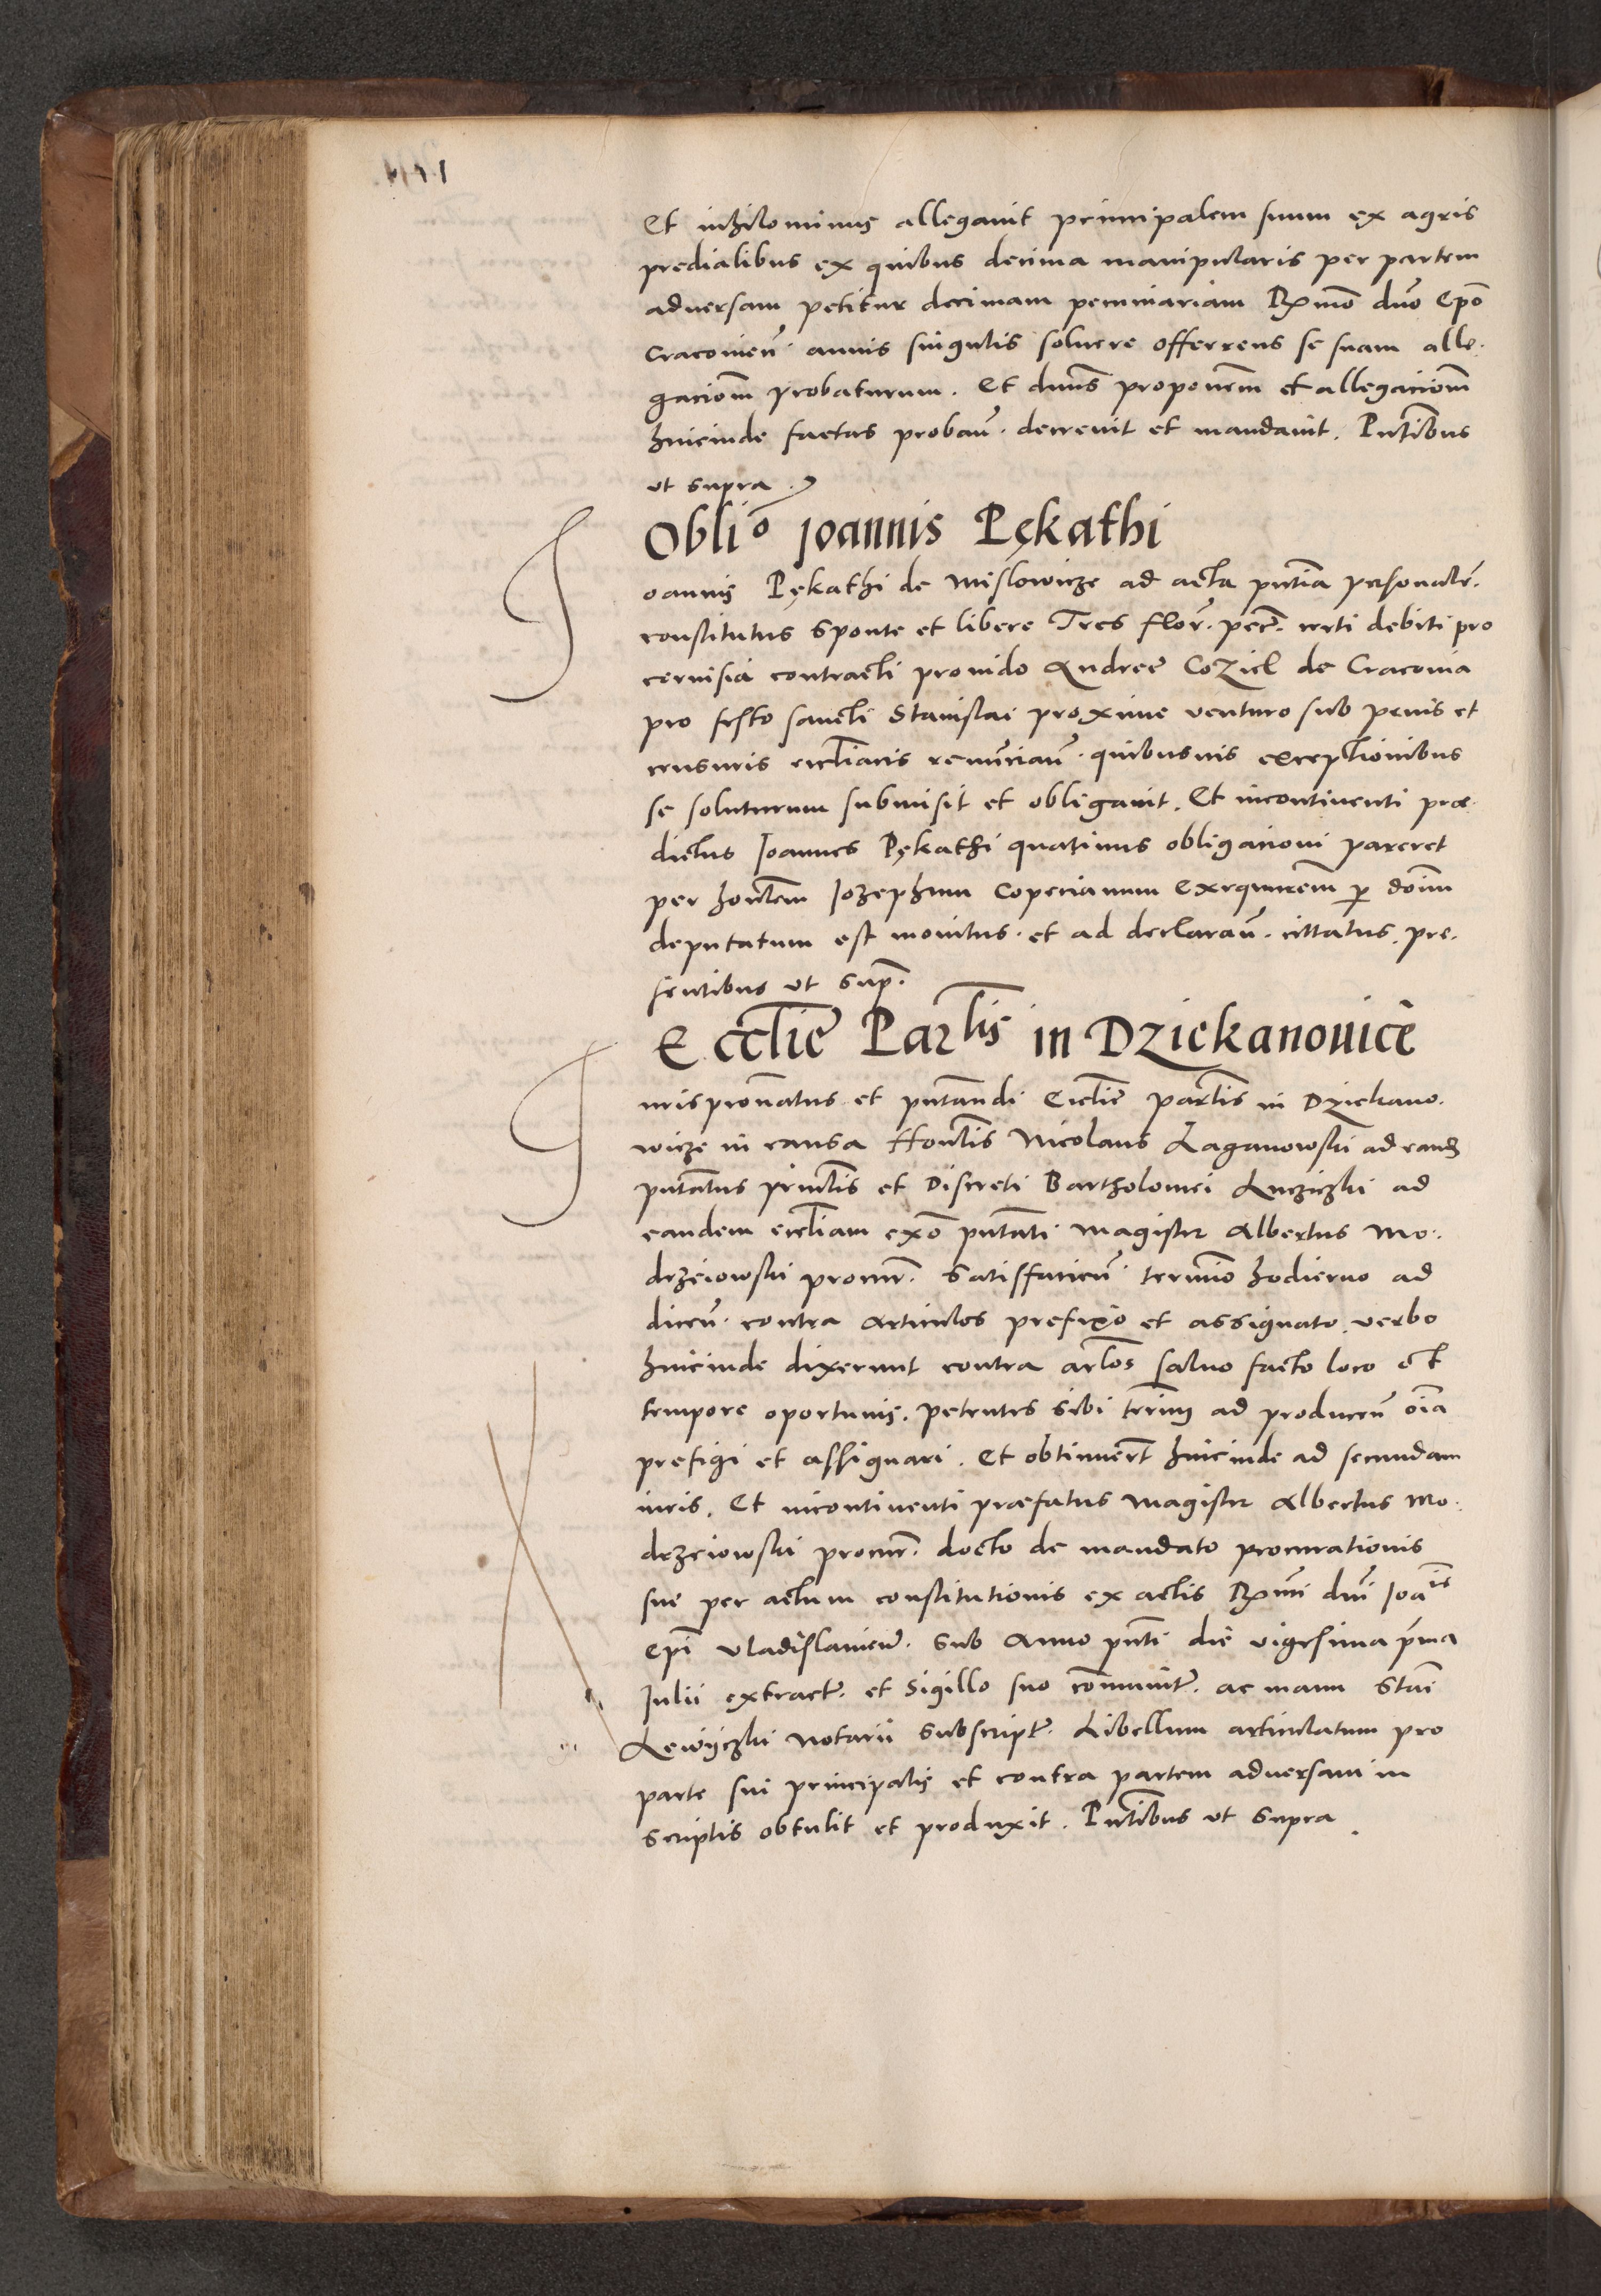 Et nihilominus allegavit principalem suum ex agris
predialibus ex quibus decima manipularis per partem
adversam petitur decimam pecuniariam Rx̄mo dn̄o Ep̄o
Cracovien̄. annis singulis solvere offerrens se suam alle-
gaciōm probaturum. Et dnus propoñem et allegaciōm
hincinde factas proban̄. decrevit et mandavit. Pn̄tibus
ut supra.
Oblio Joannis Pękathi
Joannis Pękathi de Mislowicze ad acta pn̄tia personalr̄.
constitutus sponte et libere Tres flor̄. pec̄. certi debiti pro
cervisia contracti provido Andree Coziel de Cracovia
pro festo sancti Stanislai proxime venturo sub penis et
censuris eccl̄iacis renuncian̄. quibusvis exceptionibus
se soluturum submisit et obligavit. Et incontinenti præ-
dictus Joannes Pękathi quatinus obligacioni pareret
per hon̄tem Jozephum Copecianum Exequucēm p dōim
deputatum est monitus. et ad declaran̄. cittatus. pre-
sentibus ut sup̄.
Eccl̄ie Par̄lis in Dziekanovicē
Jurispron̄atus et pn̄tandi Eccl̄ie par̄lis in Dziekano-
wicze in causa Hon̄lis Nicolaus Laganowski ad eand
pn̄tatus prin̄lis et Discreti Bartholomei Lucziczki ad
eandem eccl̄iam exō pn̄tati Magister Albertus Mo-
drzeiowski procur̄. satisfacien̄. termino hodierno ad
dicen̄. contra articulos prefixo et assignato. verbo
hincinde dixerunt contra ar̄los salvo facto loco et
tempore oportunis. petentes sibi ter̄im ad producen̄ oīa
prefigi et assignari. Et obtinuer̄t hincinde ad secundam
iuris. Et incontinenti præfatus Magister Albertus Mo-
drzeiowski procur̄. docto de mandato procurationis
sue per actum constitutionis ex actis Rx̄mi dn̄i Joāis
Ep̄i Vladislavien̄. sub Anno pn̄ti die vigesima p̄ma
Julii extract̄. et sigillo suo cōmunit̄. ac manu Stāi
Lewyczki Notarii subscript̄. Libellum articulatum pro
parte sui principalis et contra partem adversam in
scriptis obtulit et produxit. Pn̄tibus ut supra.